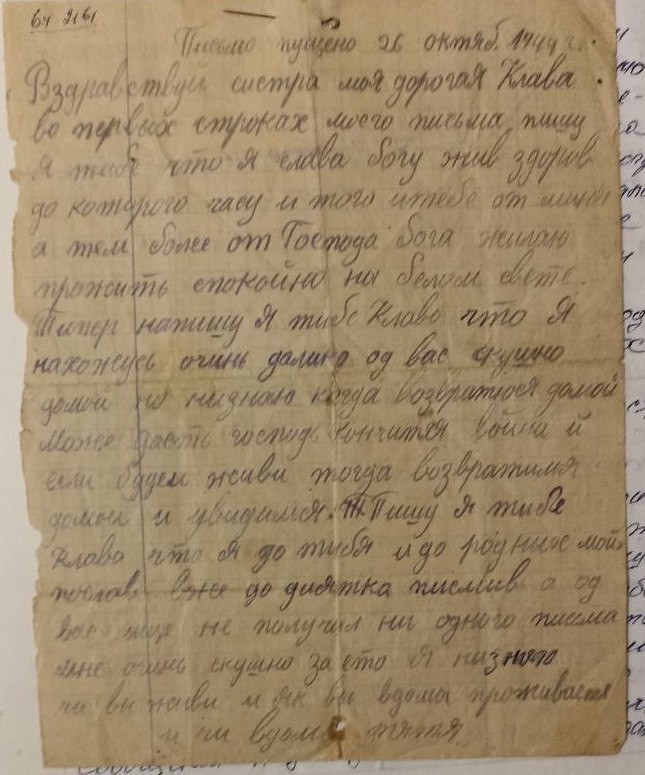 Письмо пущено 26 октяб. 1944 г.
Вздравствуй систра моя дорогая Клава
во первых строках моего письма пишу
я тибе что я слава богу жив здоров
до которого часу и того и тебе от миня
а тем более от Господа бога жилаю
прожить спокойно на белом свете.
Типер напишу я тибе Клаво что я
нахожусь очинь далико од вас скушно
домой но низнаю когда возвратюся домой
Може дасть господь кончитця война и
если будем живи тогда возвратимя
домой и увидимся. Пишу я тибе
Клаво что я до тибя и до родних мой
послав вже до дисятка писмив а од
вас ище не получал ни одного писма
мне очинь скушно за ето я низнаю
чи вы живи и як вы вдома проживаете
и чи вдома тятя